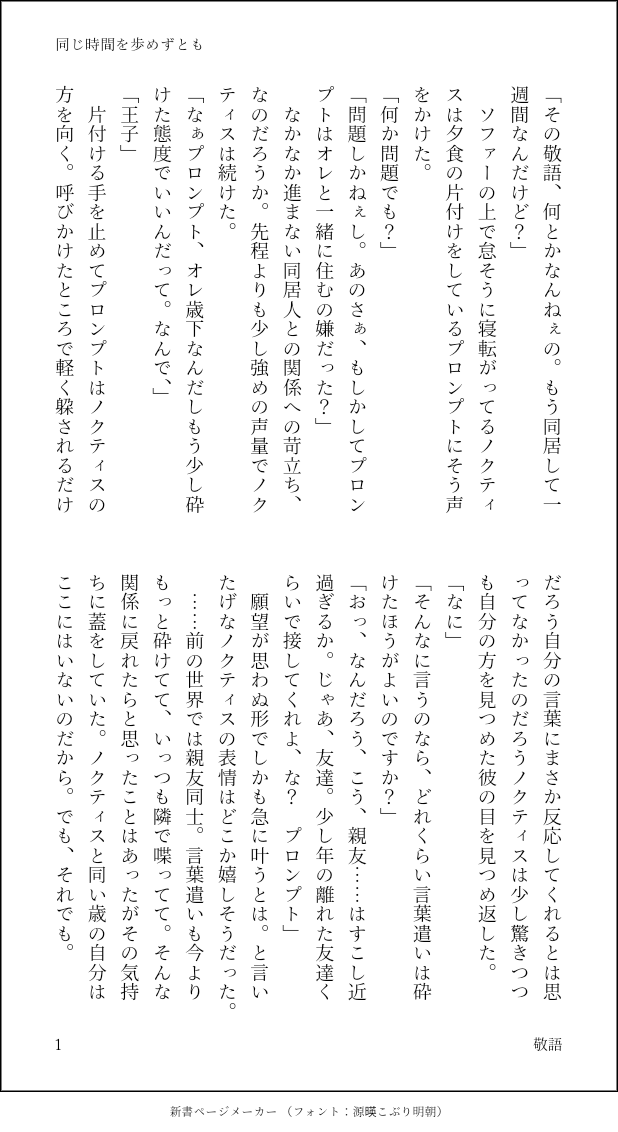 同じ時間を歩めずとも
「その敬語、何とかなんねぇの。もう同居して一
週間なんだけど？」
　ソファーの上で怠そうに寝転がってるノクティ
スは夕食の片付けをしているプロンプトにそう声
をかけた。
「何か問題でも？」
「問題しかねぇし。あのさぁ、もしかしてプロン
プトはオレと一緒に住むの嫌だった？」
　なかなか進まない同居人との関係への苛立ち、
なのだろうか。先程よりも少し強めの声量でノク
ティスは続けた。
「なぁプロンプト、オレ歳下なんだしもう少し砕
けた態度でいいんだって。なんで、」
「王子」
　片付ける手を止めてプロンプトはノクティスの
方を向く。呼びかけたところで軽く躱されるだけ
だろう自分の言葉にまさか反応してくれるとは思
ってなかったのだろうノクティスは少し驚きつつ
も自分の方を見つめた彼の目を見つめ返した。
「なに」
「そんなに言うのなら、どれくらい言葉遣いは砕
けたほうがよいのですか？」
「おっ、なんだろう、こう、親友……はすこし近
過ぎるか。じゃあ、友達。少し年の離れた友達く
らいで接してくれよ、な？　プロンプト」
　願望が思わぬ形でしかも急に叶うとは。と言い
たげなノクティスの表情はどこか嬉しそうだった。
　……前の世界では親友同士。言葉遣いも今より
もっと砕けてて、いっつも隣で喋ってて。そんな
関係に戻れたらと思ったことはあったがその気持
ちに蓋をしていた。ノクティスと同い歳の自分は
ここにはいないのだから。でも、それでも。
1
敬語
新書ページメーカー（フォント：源暎こぶり明朝）